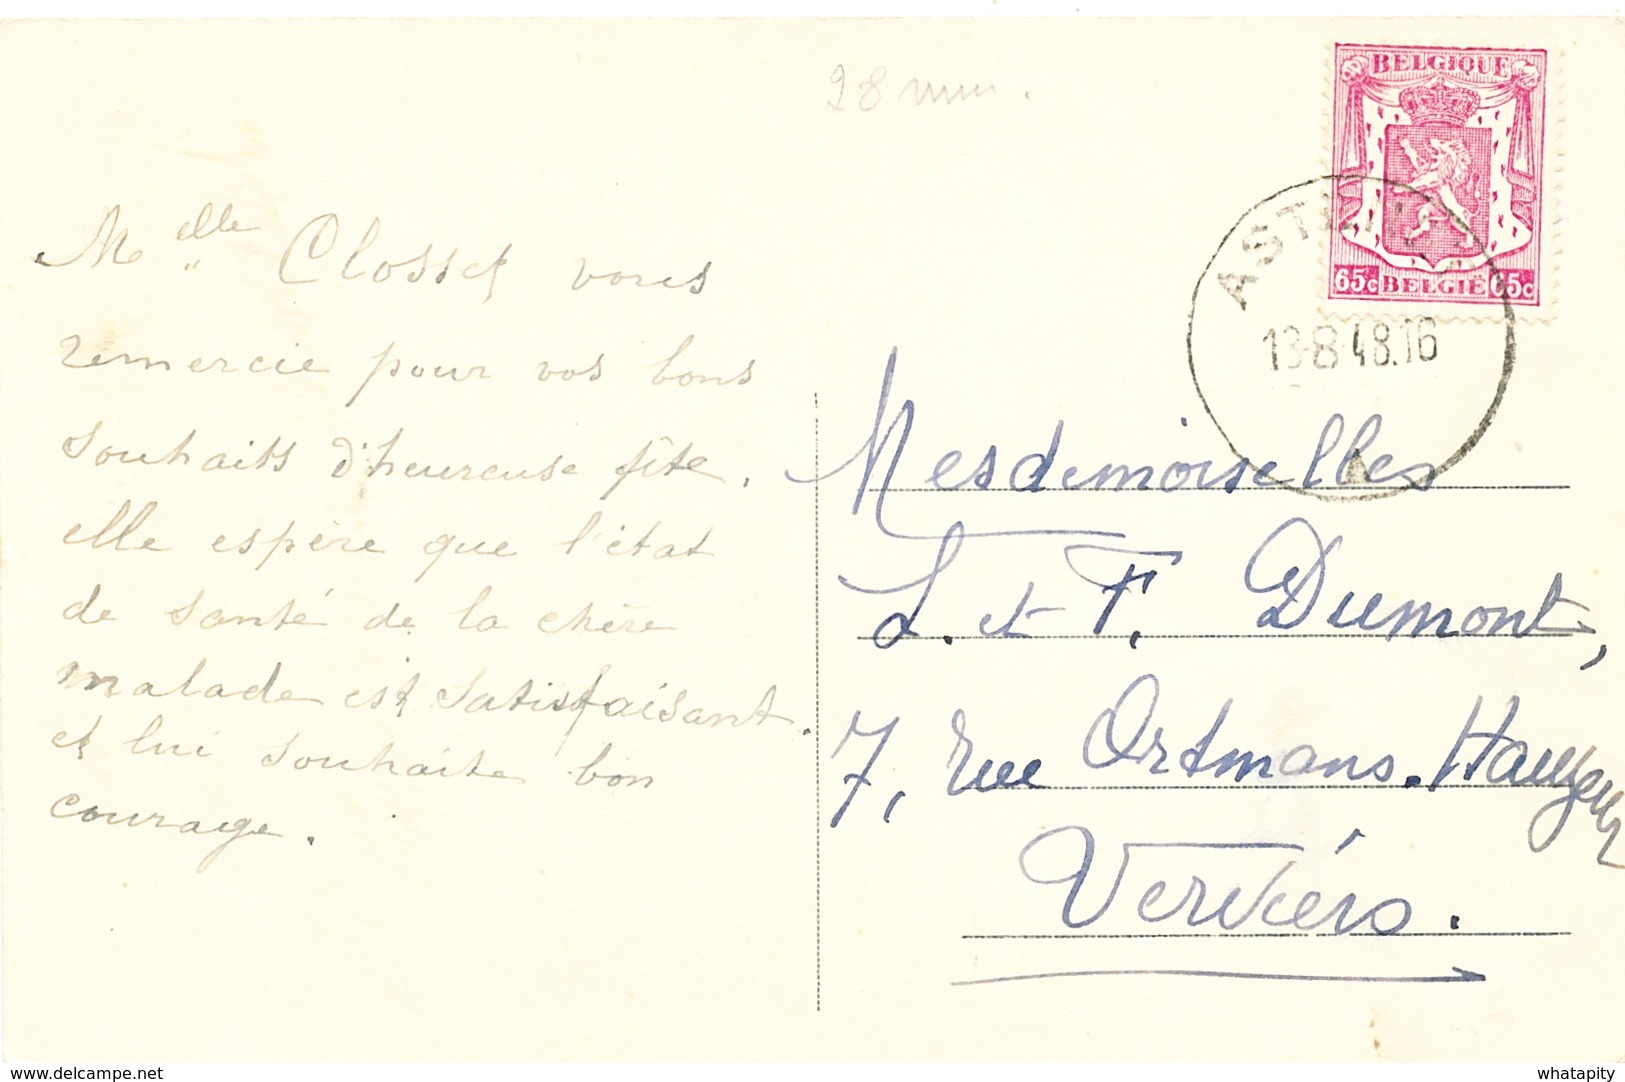 28 mm.
BELGIQUE
65c BELGIË 65c
13-8-48.16
Melle Closset vous
remercie pour vos bons
souhaits d'heureuse fête.
elle espère que l'état
de santé de la chère
malade est satisfaisant.
et lui souhaite bon
courage.
Mesdemoiselles
L. et F. Dumont,
7, rue Ortmans-Hauzeur
Verviers.
delcampe.net
whatapity